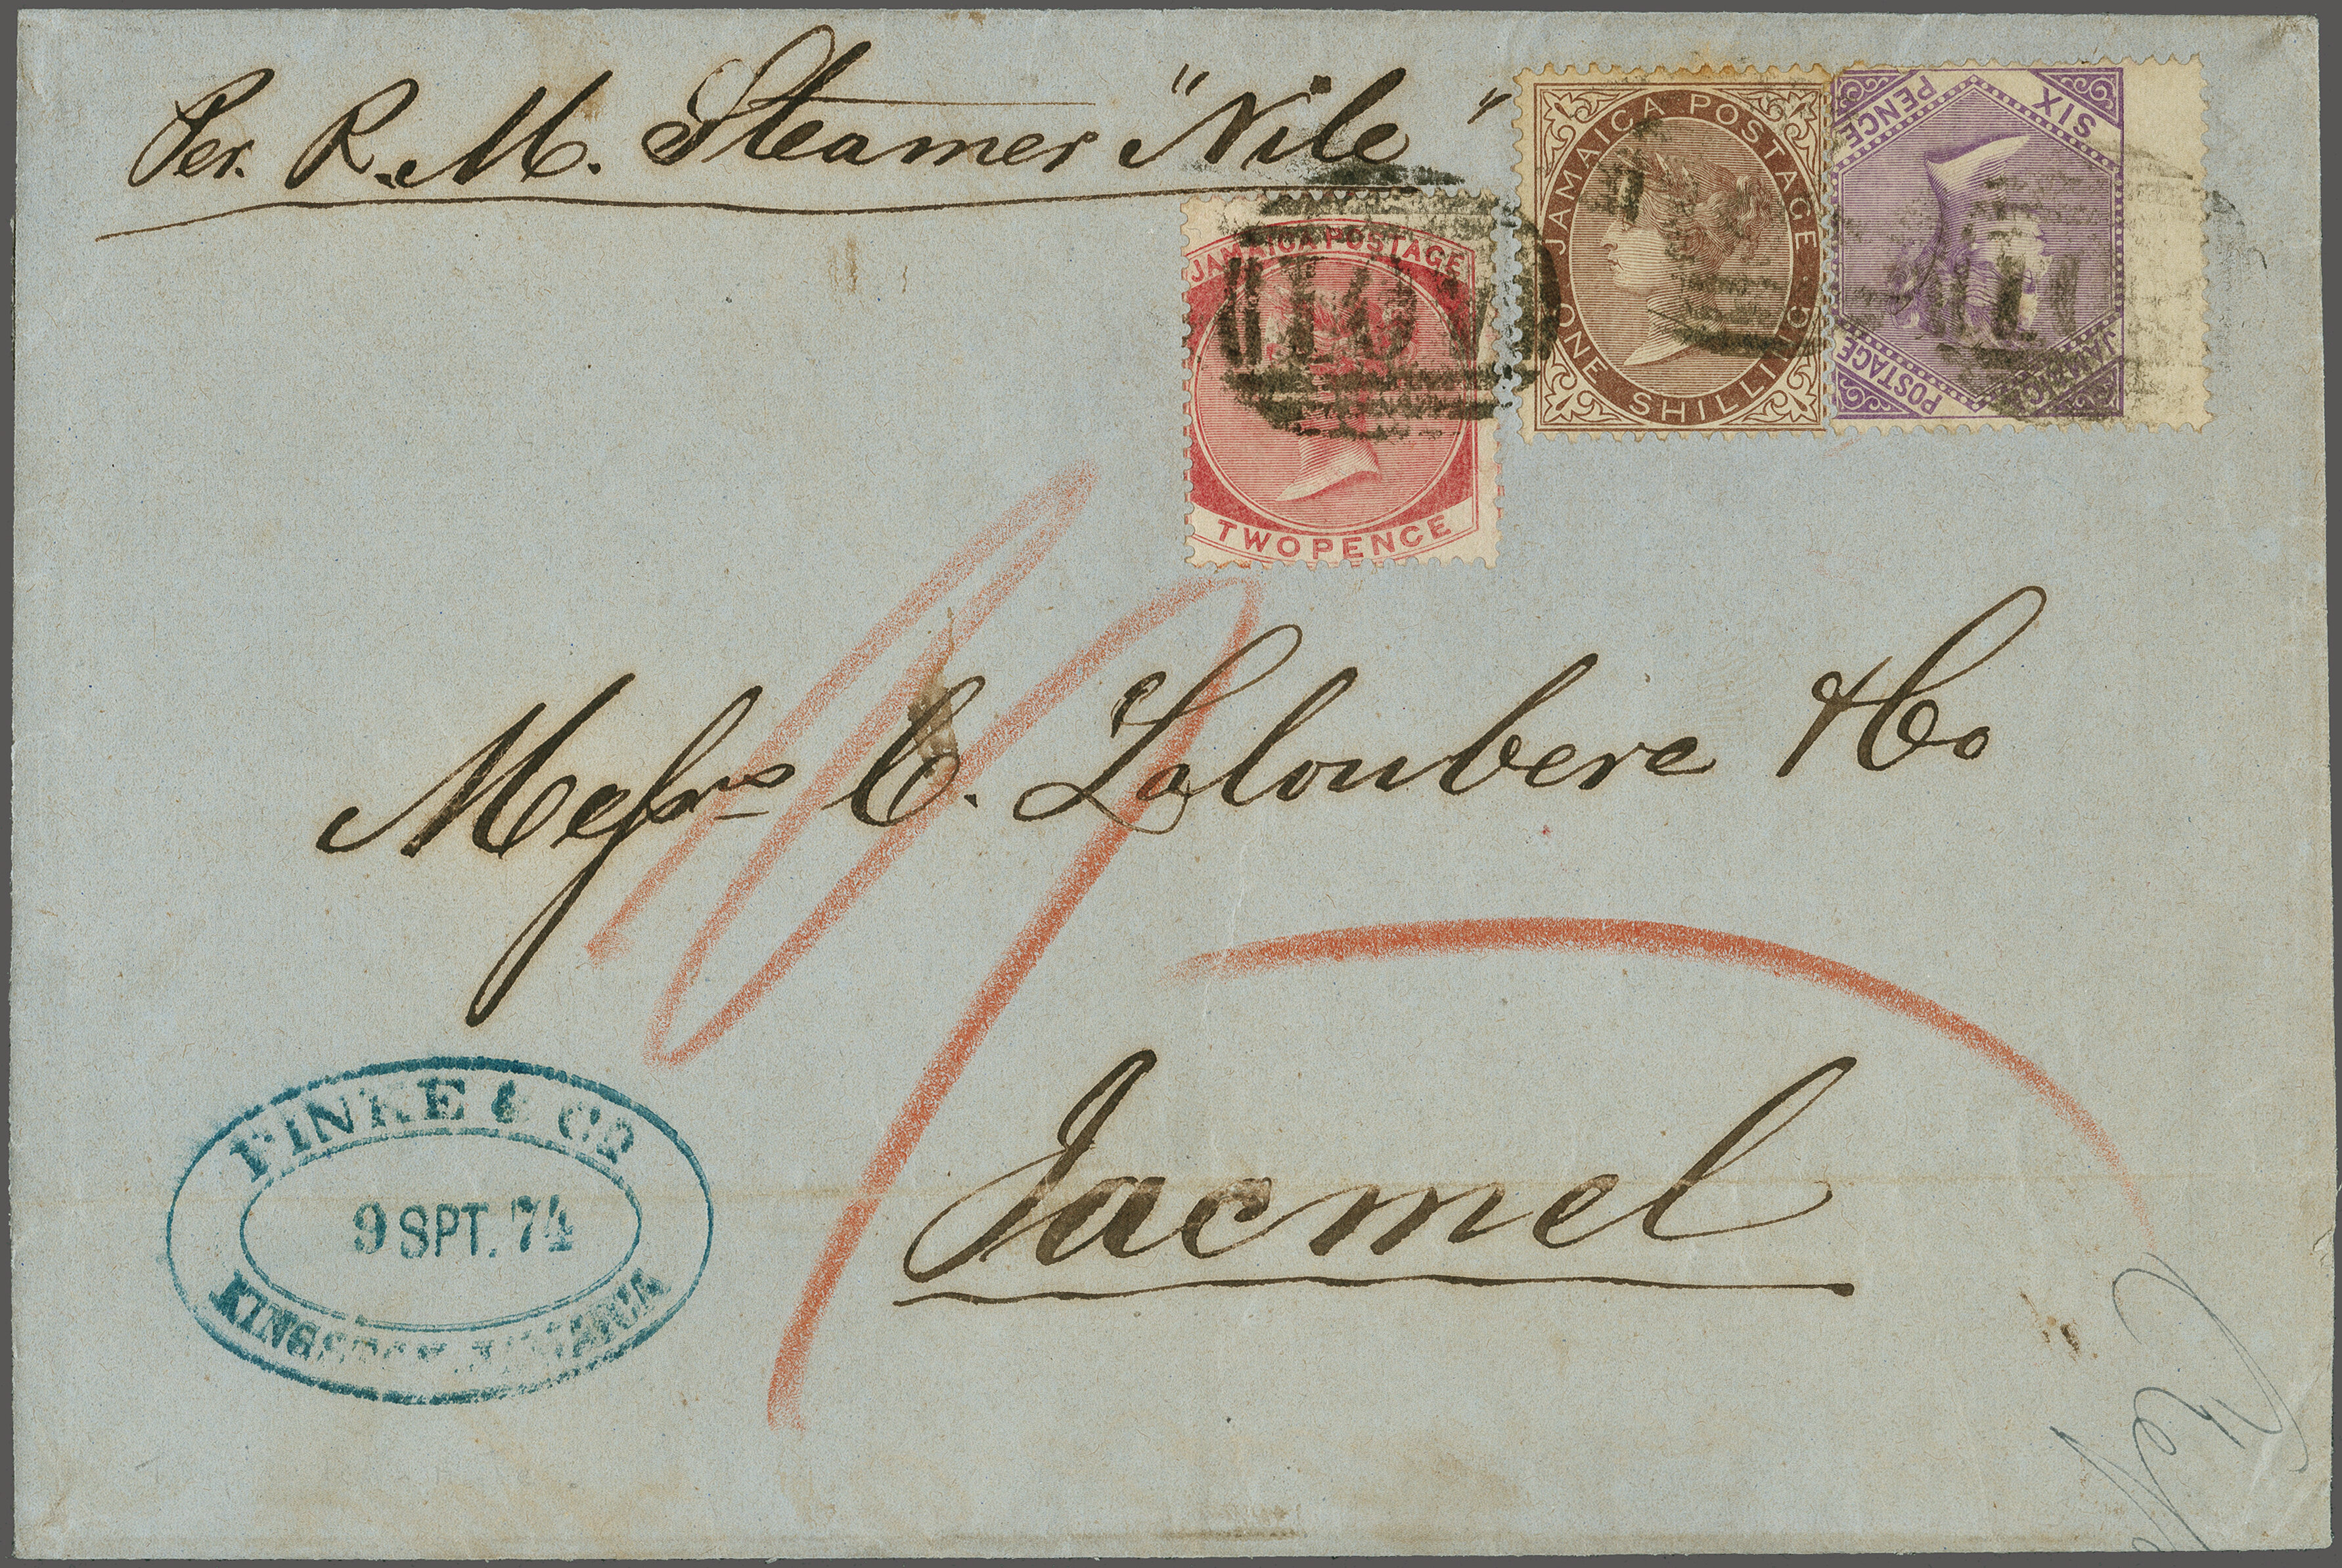 Per R.M. Steamer "Nile"
JAMAICA POSTAGE
TWO PENCE
JAMAICA POSTAGE
ONE SHILLING
SIX PENCE
JAMAICA POSTAGE
A01
Messrs C. Laloubere & Co
Jacmel
FINKE & Co
9 SPT. 74
KINGSTON JAMAICA